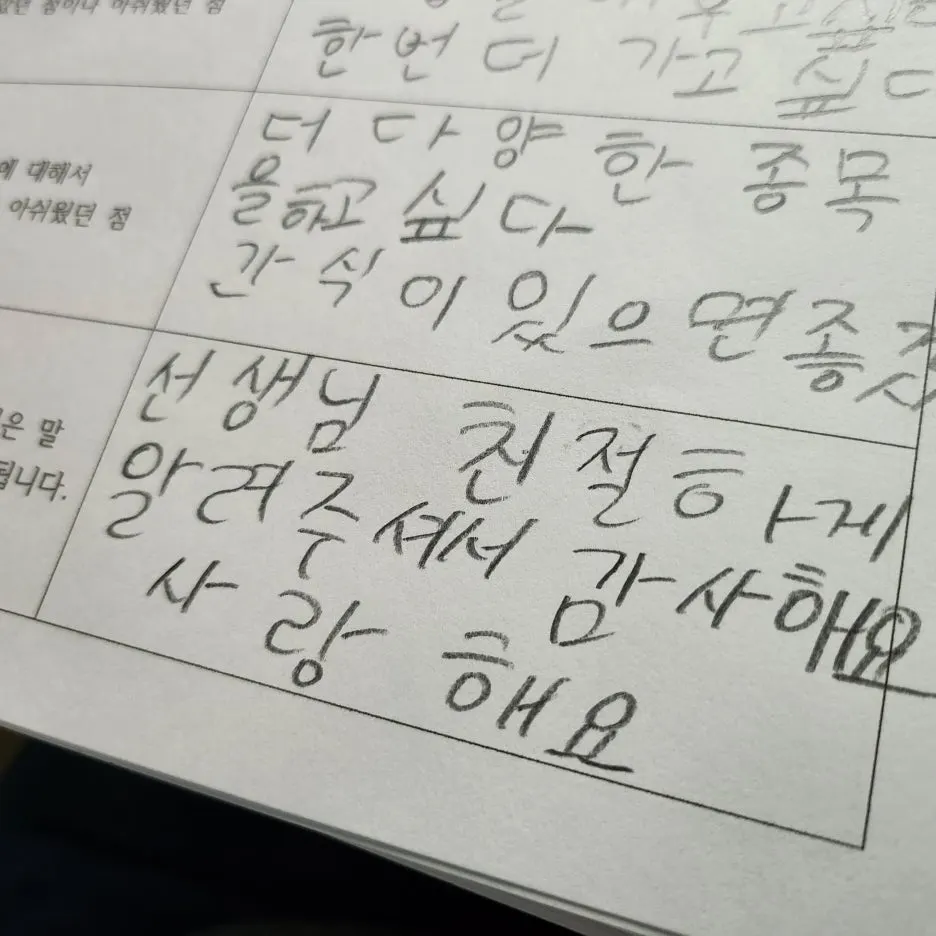 던 점이나 아쉬웠던 점
한번 더 가고 싶다
에 대해서
아쉬웠던 점
더 다양한 종목
을하고 싶다
간식이 있으면좋
은 말
됩니다.
선생님 친절하게
알려주셔서 감사해요
사랑해요